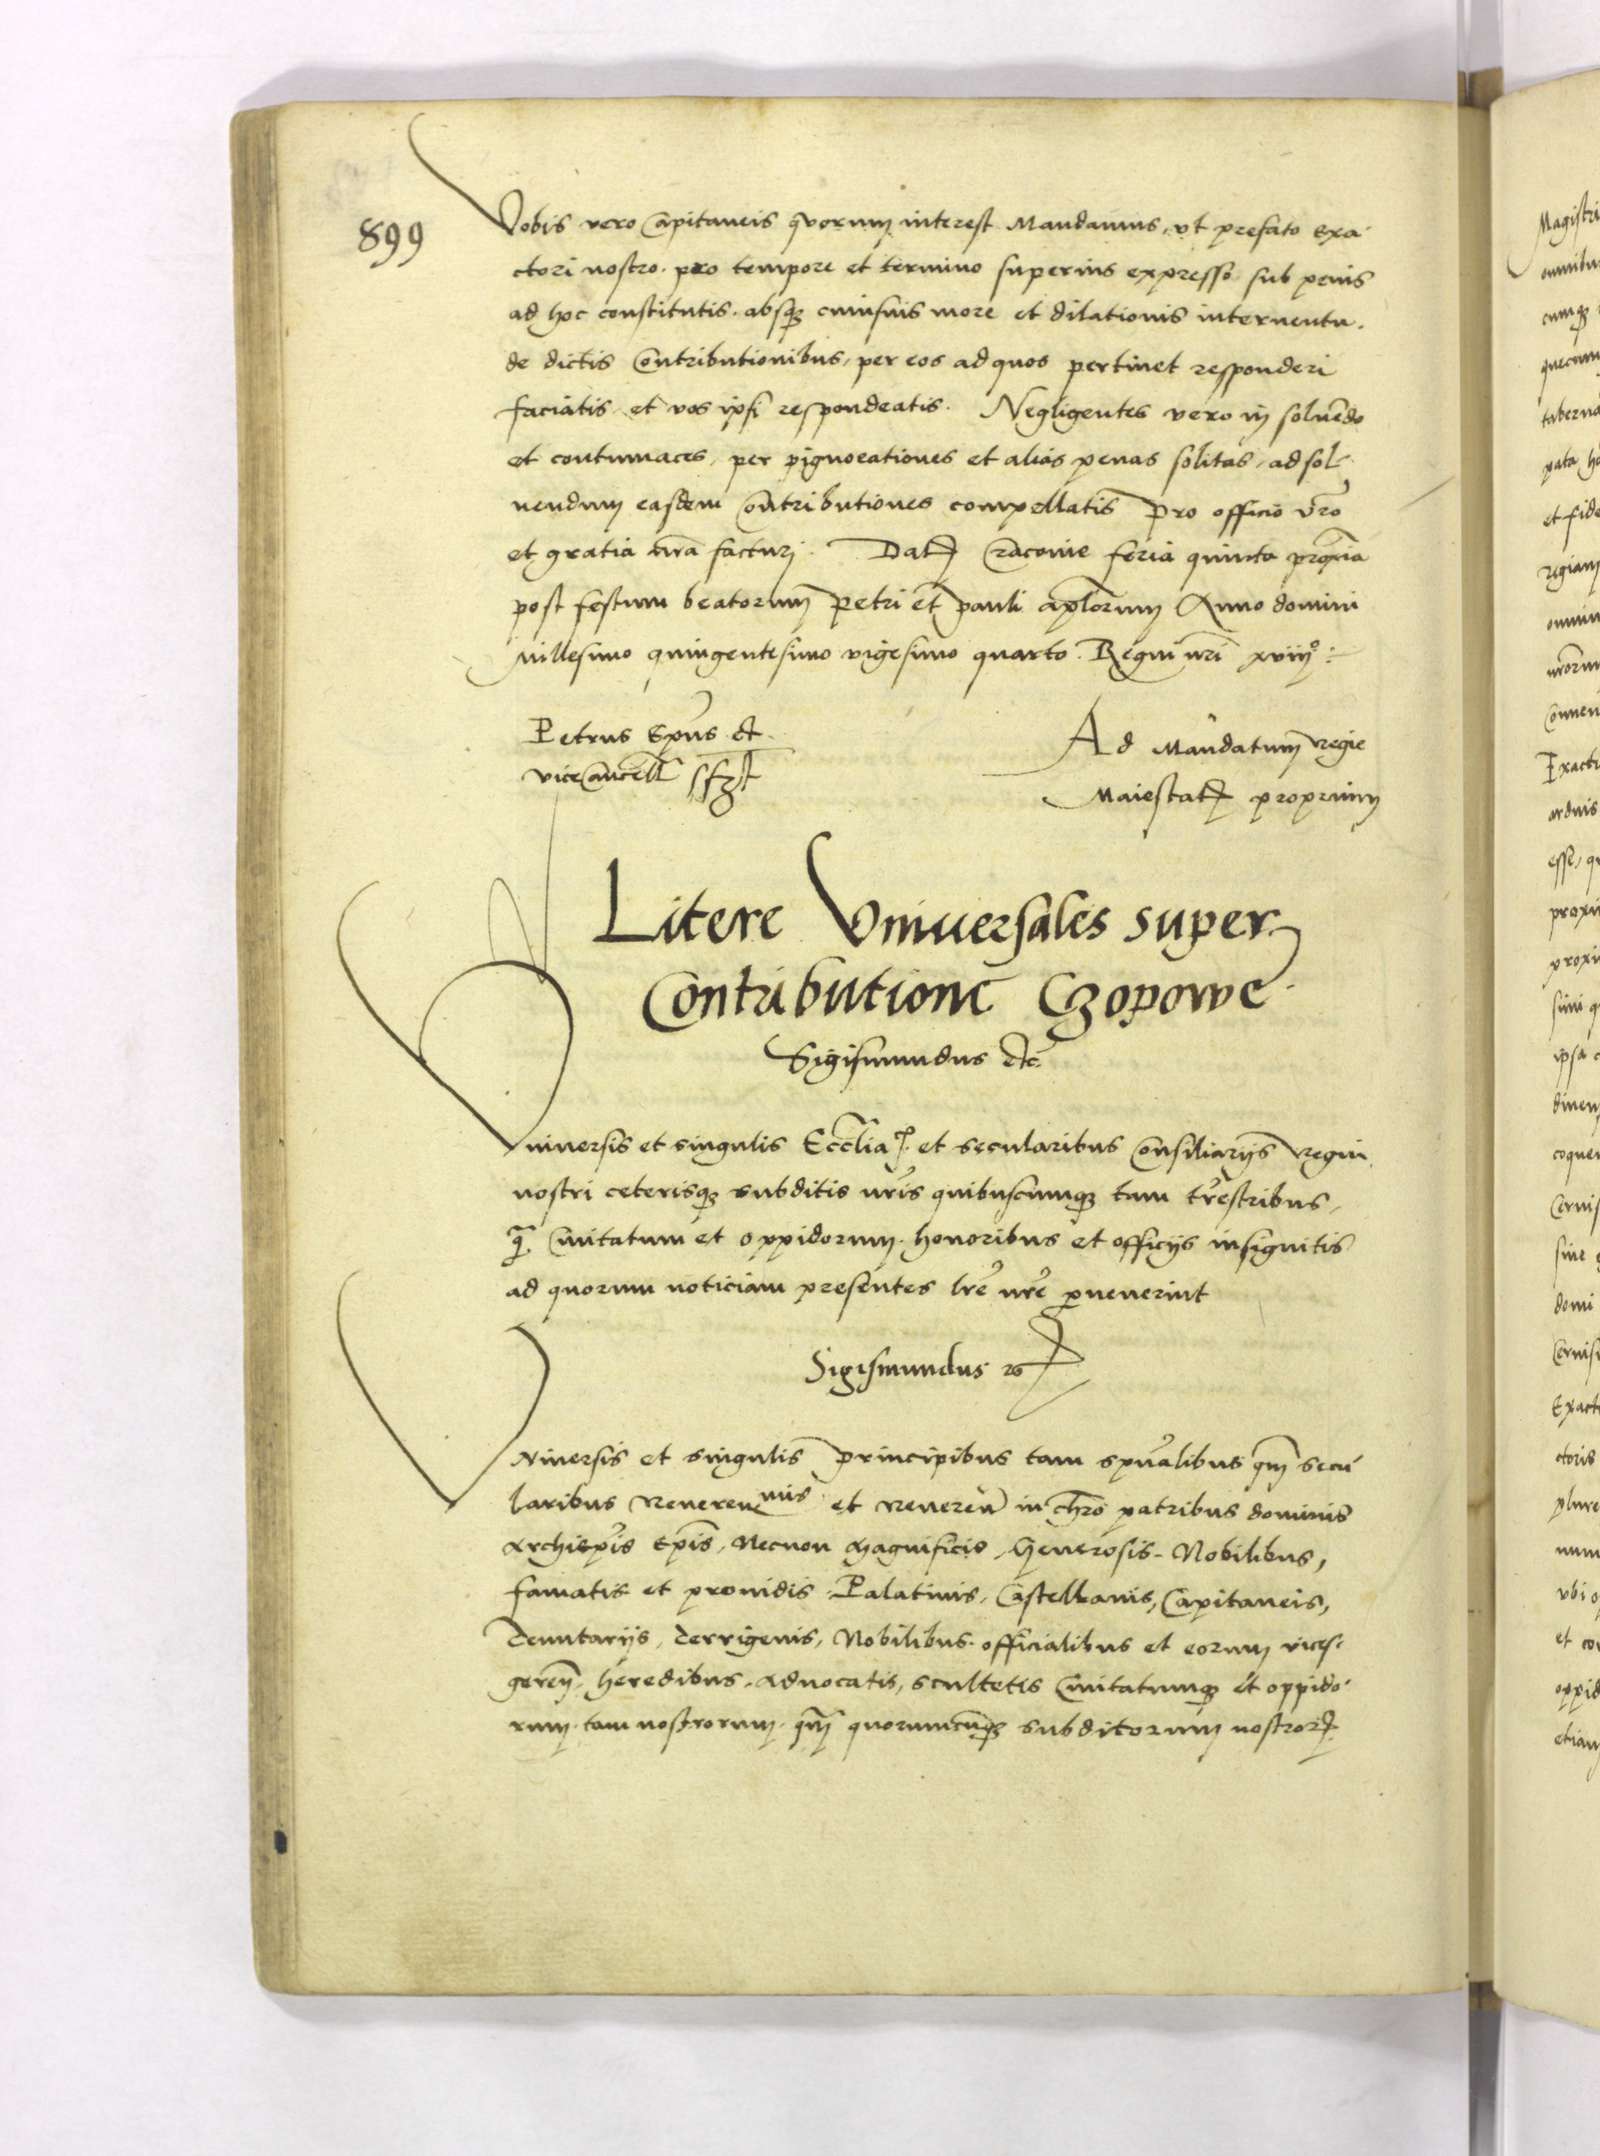 899
Vobis vero Capitaneis quorum interest Mandamus, vt prefato Exa
ctori nostro. pro tempore et termino superius expresso sub penis
ad hoc constitutis. absq3 cuiusuis more et dilationis interuentu.
de dictis Contributionibus, per eos ad quos pertinet responderi
faciatis et vos ipsi respondeatis. Negligentes vero in soluẽdo
et contumaces, per pignorationes et alias penas solitas, ad sol
uendum easdem Contributiones compellatis Pro officio vr̃o
et gratia nr̃a facturi. Datꝭ Cracovie feria quinta prox̃ia
post festum beatorum Petri et Pauli ap̃lorum Anno domini
Millesimo quingentesimo vigesimo quarto. Regni nr̃i xviij°:
Petrus Ep̃us et
vicecancell̃ sszt
Ad Mandatum Regie
Maiestatꝭ proprium
Litere Vniuersales super
Contributione Czopowe
Sigismundus etc̃
Vniuersis et singulis Eccl̃ia. et secularibus Consiliarijs Regni
nostri ceterisq3 subditis nr̃is quibuscumq3 tam tr̃estribus,
q̃ Ciuitatum et oppidorum. honoribus et officijs insignitis
ad quorum noticiam presentes lr̃e nr̃e puenerint
Sigismundus
VNiuersis et singulis Principibus tam sp̃ualibus qm̃ secu
laribus Reueren mis et Reueren̄ in chr̃o patribus dominis
Archiep̃is Ep̃is, Necnon Magnificis, Generosis, Nobilibus,
famatis et prouidis Palatinis, Castellanis, Capitaneis,
Tenutarijs, Terrigenis, Nobilibus. officialibus et eorum vices
geren̄, heredibus, Aduocatis, scultetis Ciuitatumq3 et oppido
rum. tam nostrorum. qm̃ quorumcũq3 subditorum nostrorꝭ